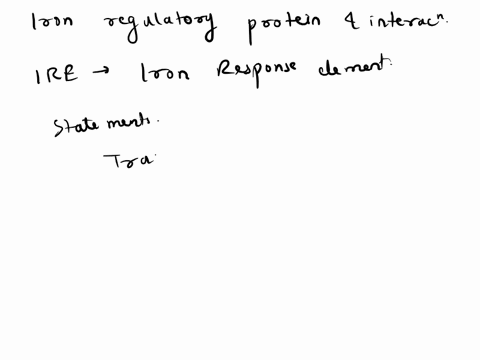 Iron regulatory protein & interacⁿ.
IRE → Iron Response element.
Statements.
Tra